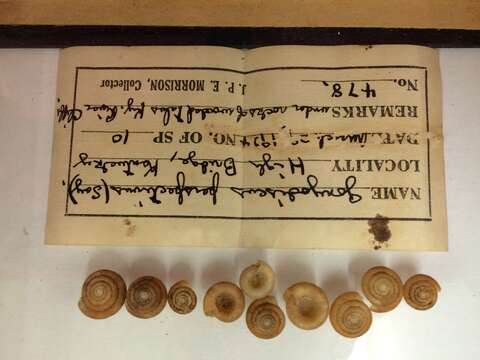 NAME Gonyodiscus perspectivus (Say).
LOCALITY High Bridge, Kentucky
DAT. March 29, 1924 NO. OF SP 10
REMARKS under rocks of wooded talus Ky. River Cliff
No. 478. J. P. E. MORRISON, Collector